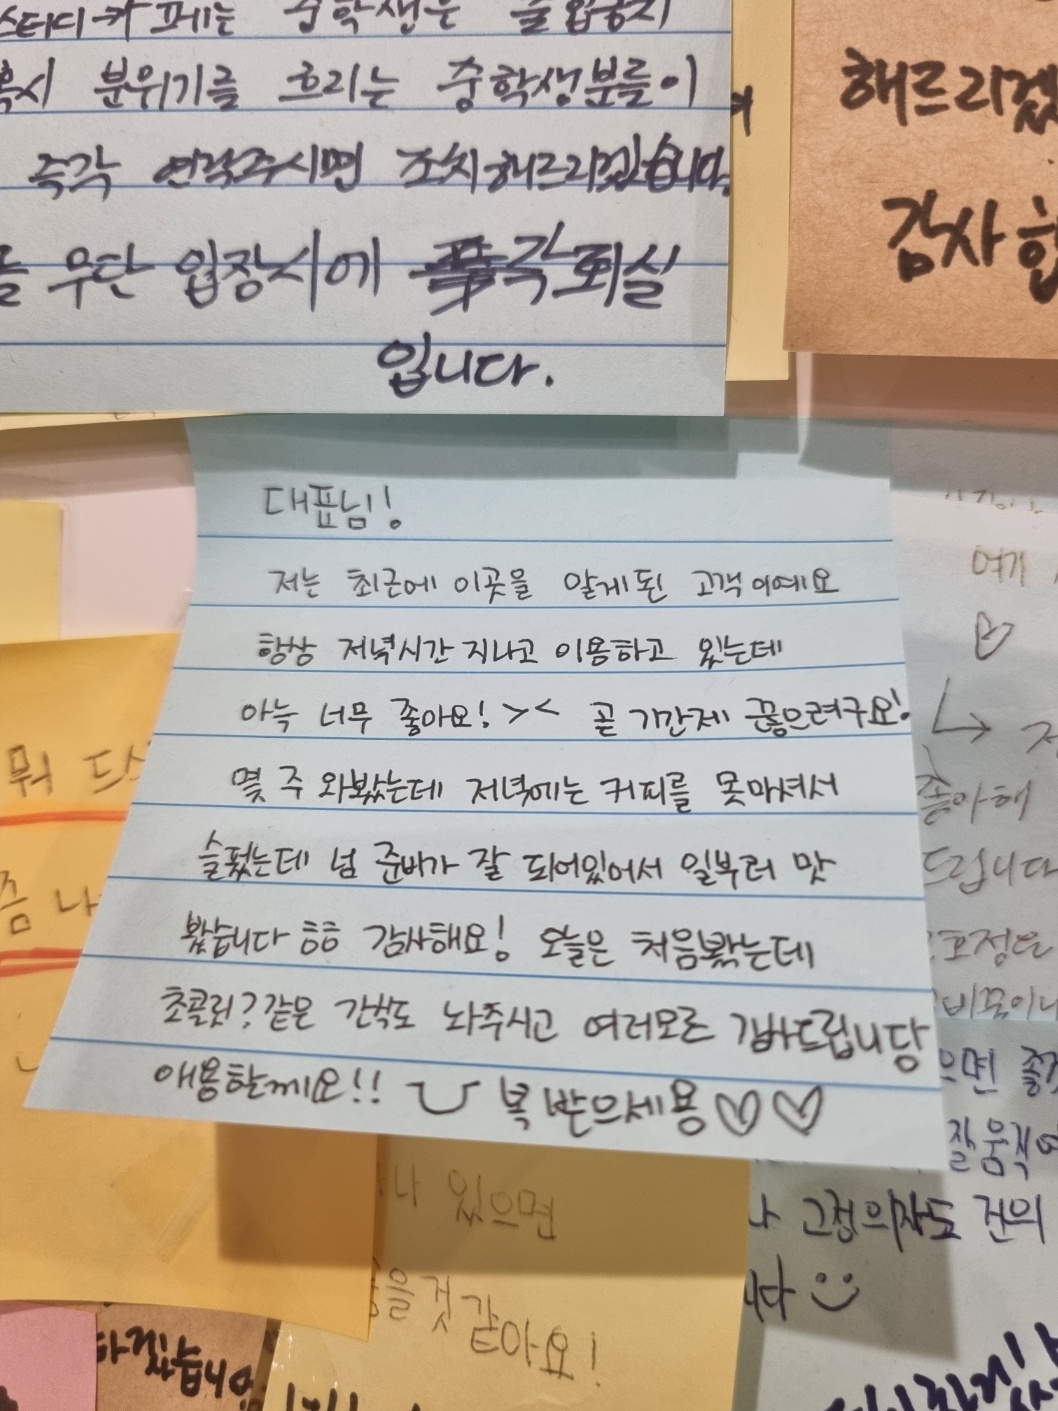 스터디카페는 중학생은 출입금지
혹시 분위기를 흐리는 중학생분들이
즉각 연락주시면 조치해드리겠습니다.
들 무단 입장시에 즉각퇴실
입니다.
해드리겠
감사합
대표님!
저는 최근에 이곳을 알게된 고객이에요
항상 저녁시간 지나고 이용하고 있는데
아늑 너무 좋아요! >< 곧 기간제 끊으려구요!
몇 주 와봤는데 저녁에는 커피를 못마셔서
슬펐는데 넘 준비가 잘 되어있어서 일부러 맛
봤습니다 ㅎㅎ 감사해요! 오늘은 처음봤는데
초콜릿? 같은 간식도 놔주시고 여러모로 감사드립니당
애용할께요!! 복 받으세용♡♡
여기
좋아해
드립니다
표정은
으면 좋
잘 움직여
나 고정의자도 건의
니다
뭐 드시
좀 나
나 있으면
좋을것 같아요!